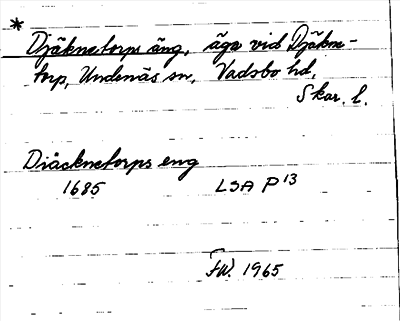 * Djäknetorps äng, äga vid Djäkne-
torp, Undenäs sn, Vadsbo hd,
Skar. l.
Diåcknetorps eng
1685 LSA P 13
FW. 1965